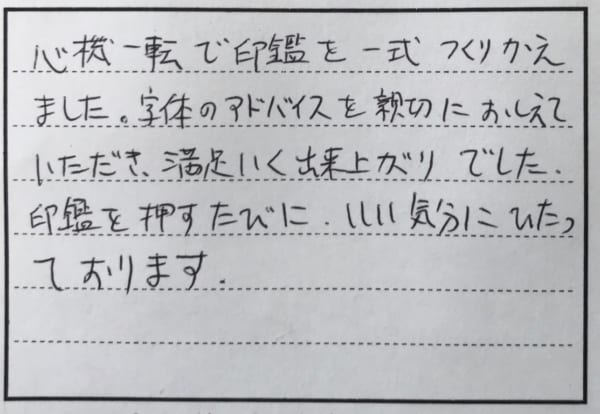 心機一転で印鑑を一式つくりかえ
ました。字体のアドバイスを親切におしえて
いただき、満足いく出来上がりでした。
印鑑を押すたびに、いい気分にひたっ
ております。